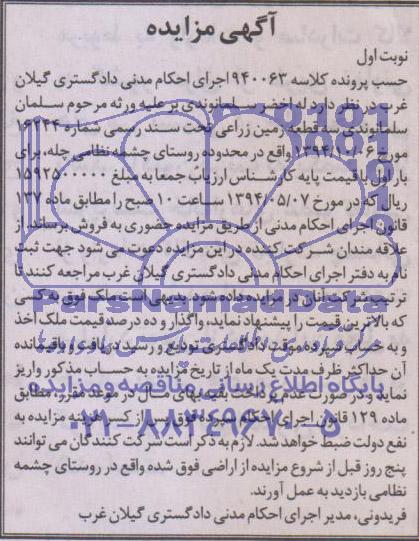 آگهی مزایده
نوبت اول
حسب پرونده کلاسه ۹۴۰۰۶۳ اجرای احکام مدنی دادگستری گیلان
غرب در نظر دارد له اخضر سلمانوندی بر علیه ورثه مرحوم سلمان
سلمانوندی سه قطعه زمین زراعی تحت سند رسمی شماره ۱۶۲۴۴
مورخ واقع در محدوده روستای چشمه نظامی چله، برای
بار اول با قیمت پایه کارشناس ارزیاب جمعا به مبلغ
ریال که در مورخ ۱۳۹۴/۰۵/۰۷ ساعت ۱۰ صبح را مطابق ماده ۱۳۷
قانون اجرای احکام مدنی از طریق مزایده حضوری به فروش برساند. از
علاقه مندان شرکت کننده در این مزایده دعوت می شود جهت ثبت
نام به دفتر اجرای احکام مدنی دادگستری گیلان غرب مراجعه کنند تا
ترتیب شرکت آنان در مزایده داده شود. بدیهی است ملک فوق به کسی
که بالاترین قیمت را پیشنهاد نماید، واگذار و ده درصد قیمت ملک اخذ
و به حساب سپرده موقت دادگستری تودیع و رسید دریافت و باقیمانده
آن حداکثر ظرف مدت یک ماه از تاریخ مزایده به حساب مذکور واریز
نماید و در صورت عدم پرداخت بقیه بهای مال در موعد مقرر، مطابق
ماده ۱۲۹ قانون اجرای احکام سپرده فوق پس از کسر هزینه مزایده به
نفع دولت ضبط خواهد شد. لازم به ذکر است شرکت کنندگان می توانند
پنج روز قبل از شروع مزایده از اراضی فوق شده واقع در روستای چشمه
نظامی بازدید به عمل آورند.
فریدونی، مدیر اجرای احکام مدنی دادگستری گیلان غرب
ParsNamadData
پایگاه اطلاع رسانی مناقصه و مزایده
۰۲۱-۸۸۳۴۹۶۷۰-۵